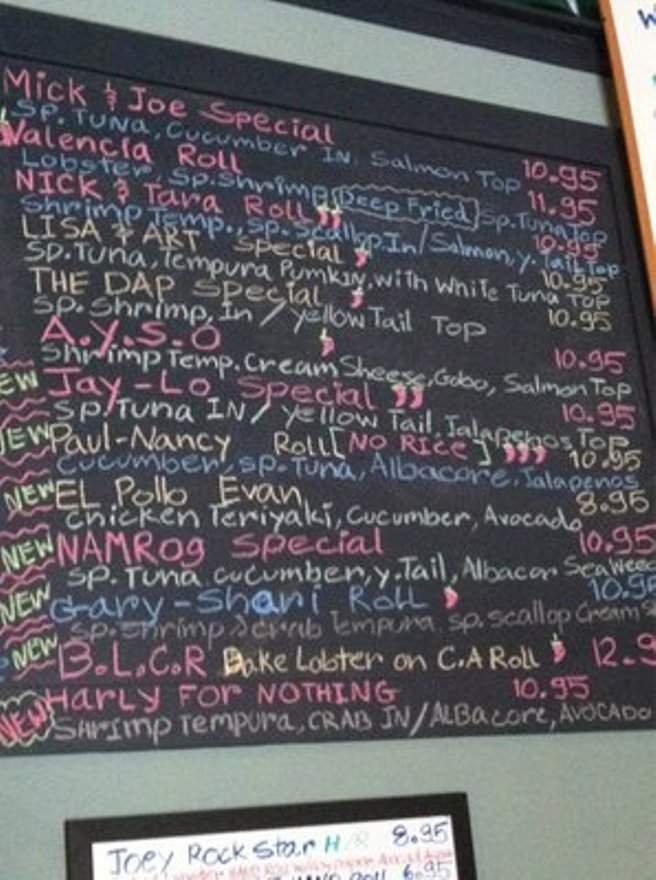 Mick & Joe Special
SP. Tuna, Cucumber In, Salmon Top 10.95
Valencia Roll 11.95
Lobster, Sp. Shrimp Deep Fried Sp. Tuna Top
NICK & Tara Roll 10.95
Shrimp Temp., sp. Scallop In/Salmon, y. Tail Top
LISA & ART Special 10.95
SP. Tuna, Tempura Pumkin, with White Tuna TOP
THE DAP Special 10.95
SP. Shrimp, In / yellow Tail Top
A.Y.S.O 10.95
Shrimp Temp. Cream Sheese, Gobo, Salmon Top
NEW Jay-Lo Special 10.95
SP. Tuna IN / yellow Tail, Jalapenos Top
NEW Paul-Nancy Roll [NO RICE] 10.95
Cucumber, sp. Tuna, Albacore, Jalapenos
NEW EL Pollo Evan 8.95
Chicken Teriyaki, Cucumber, Avocado
NEW NAMROg Special 10.95
SP. Tuna cucumber, y. Tail, Albacor Seaweed
NEW Gary-Shari Roll 10.95
Sp. Shrimp & crab Tempura sp. scallop Cream
NEW B.L.C.R Bake Lobter on C.A Roll 12.9
NEW Harly FOR NOTHING 10.95
SHRImp Tempura, CRAB IN/ALBacore, AVOCADO
Joey Rock Star H/R 8.95
6.95